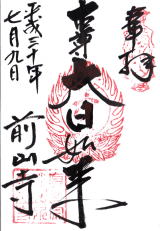 奉拝
大日如来
前山寺
平成三十年
七月九日